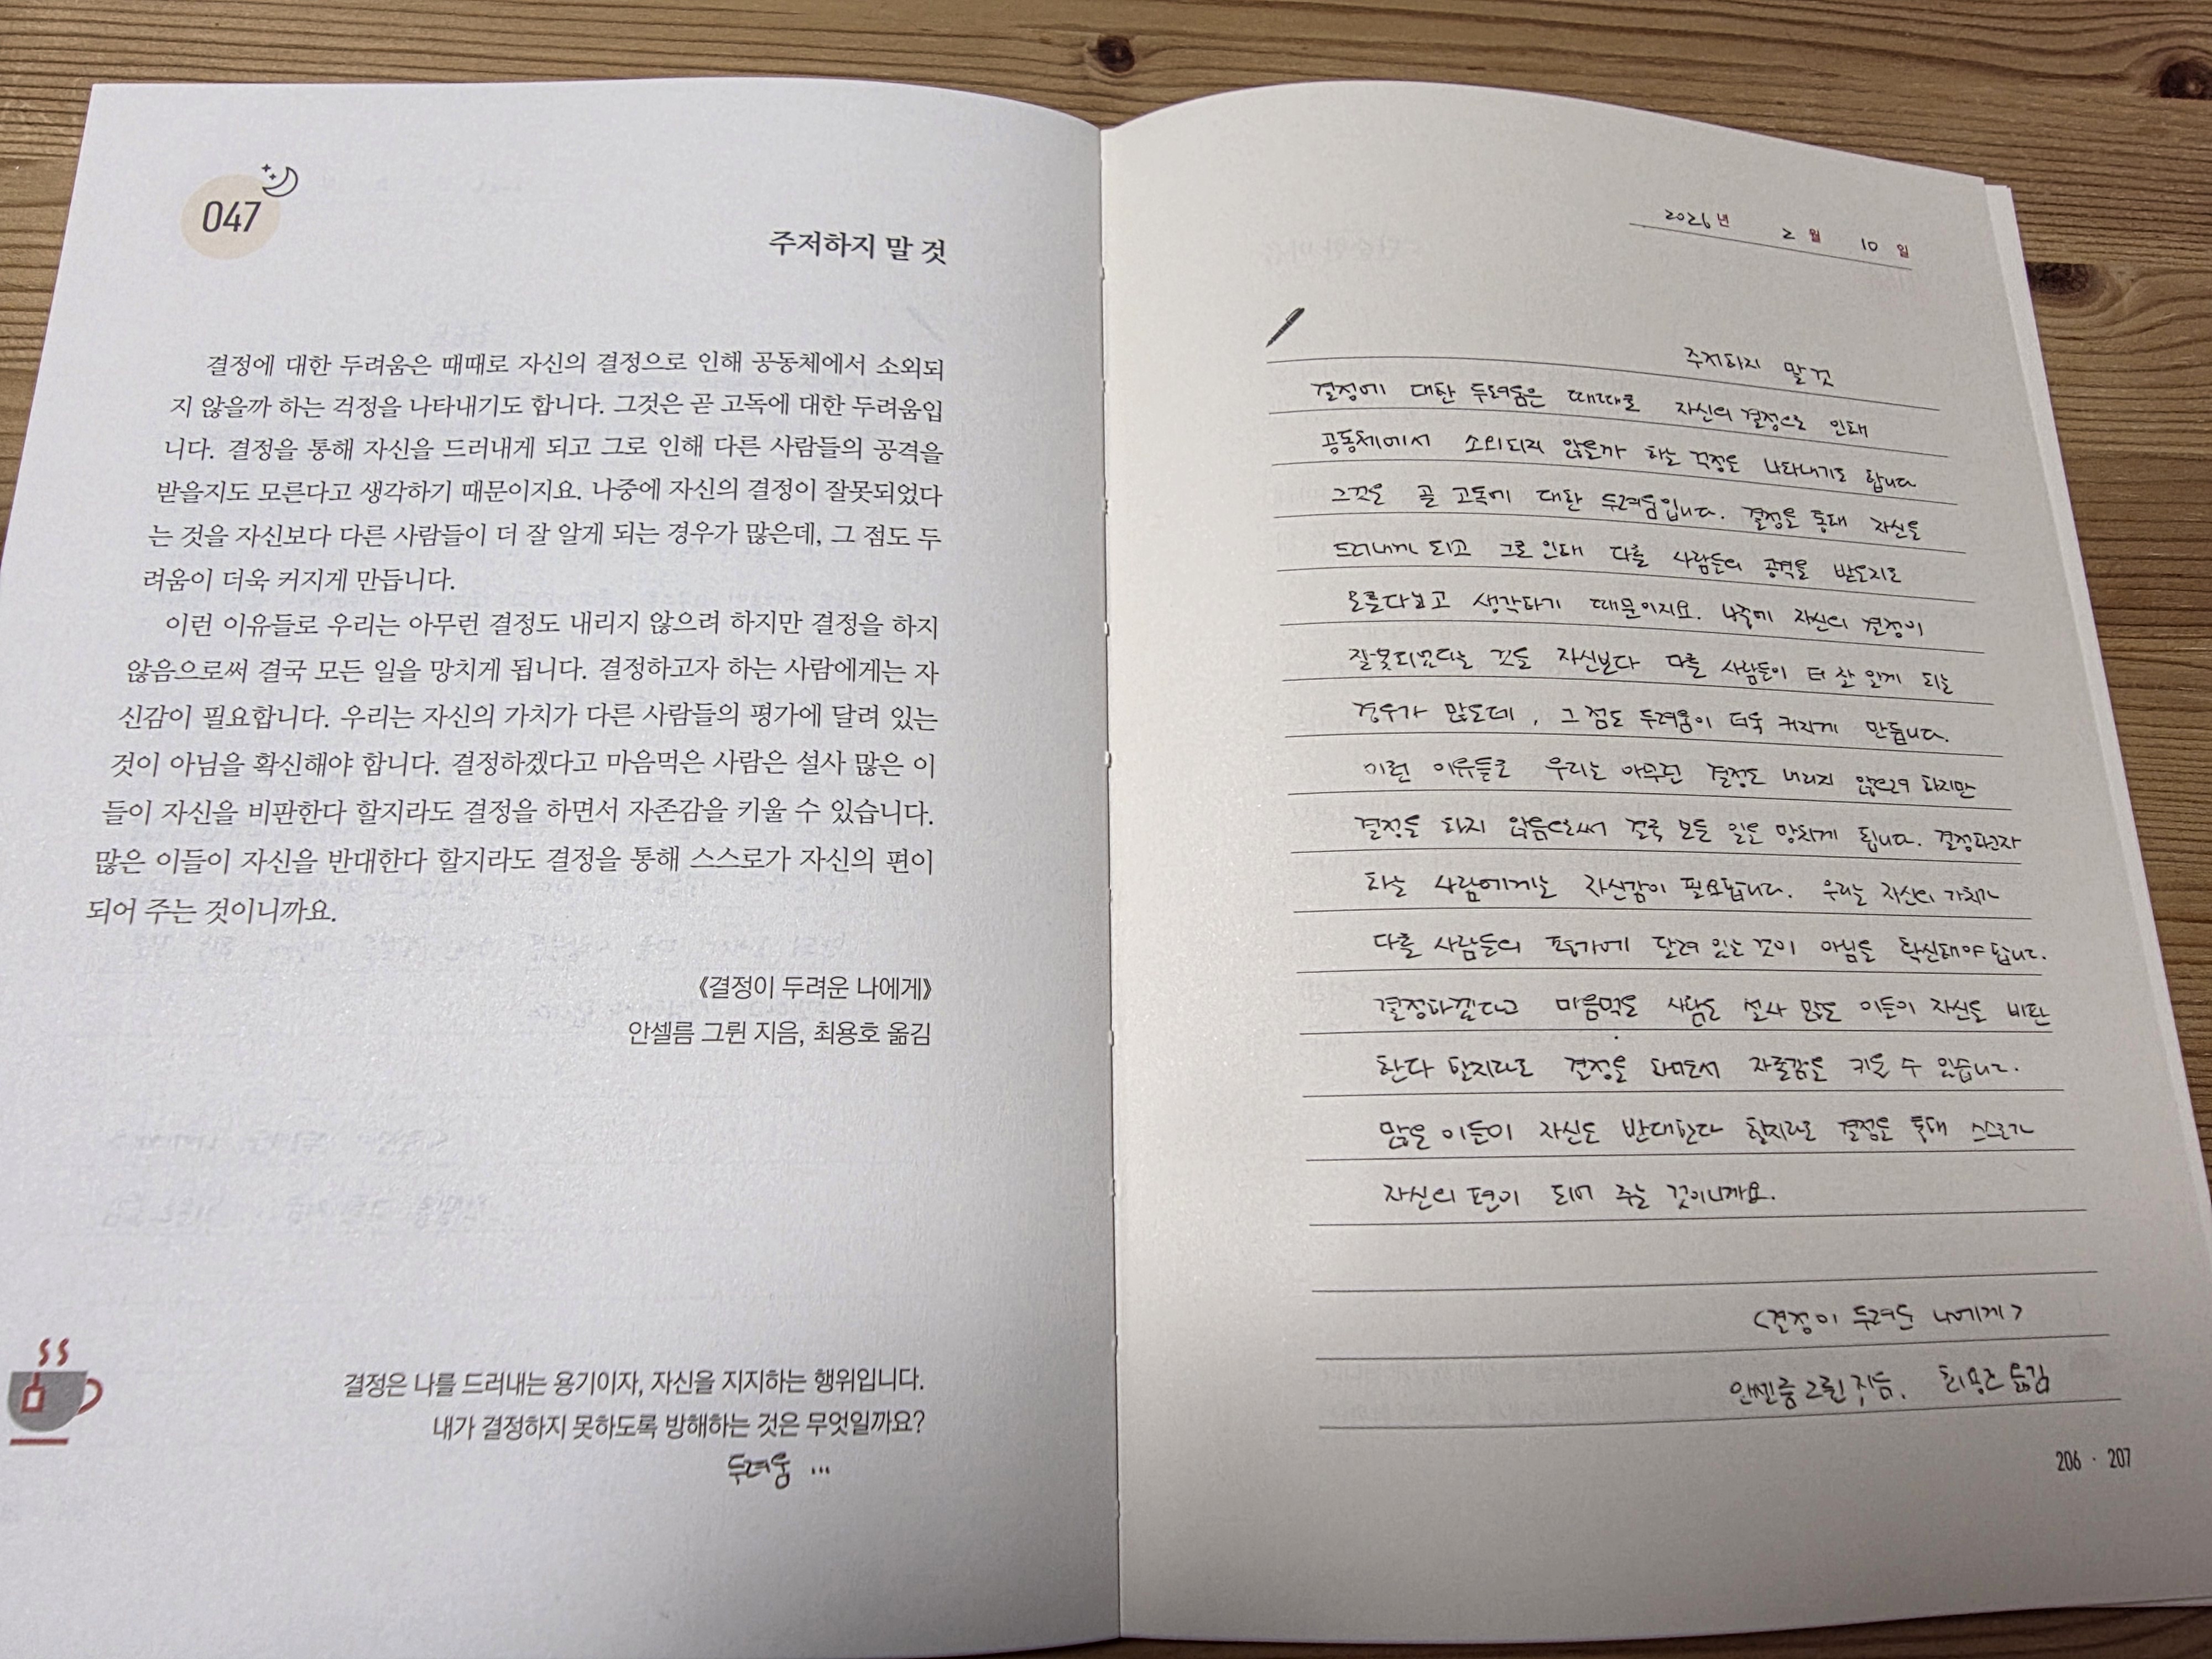 047
주저하지 말 것
결정에 대한 두려움은 때때로 자신의 결정으로 인해 공동체에서 소외되
지 않을까 하는 걱정을 나타내기도 합니다. 그것은 곧 고독에 대한 두려움입
니다. 결정을 통해 자신을 드러내게 되고 그로 인해 다른 사람들의 공격을
받을지도 모른다고 생각하기 때문이지요. 나중에 자신의 결정이 잘못되었다
는 것을 자신보다 다른 사람들이 더 잘 알게 되는 경우가 많은데, 그 점도 두
려움이 더욱 커지게 만듭니다.
이런 이유들로 우리는 아무런 결정도 내리지 않으려 하지만 결정을 하지
않음으로써 결국 모든 일을 망치게 됩니다. 결정하고자 하는 사람에게는 자
신감이 필요합니다. 우리는 자신의 가치가 다른 사람들의 평가에 달려 있는
것이 아님을 확신해야 합니다. 결정하겠다고 마음먹은 사람은 설사 많은 이
들이 자신을 비판한다 할지라도 결정을 하면서 자존감을 키울 수 있습니다.
많은 이들이 자신을 반대한다 할지라도 결정을 통해 스스로가 자신의 편이
되어 주는 것이니까요.
《결정이 두려운 나에게》
안셀름 그륀 지음, 최용호 옮김
결정은 나를 드러내는 용기이자, 자신을 지지하는 행위입니다.
내가 결정하지 못하도록 방해하는 것은 무엇일까요?
두려움 ...
2026년 2월 10일
주저하지 말 것
결정에 대한 두려움은 때때로 자신의 결정으로 인해
공동체에서 소외되지 않을까 하는 걱정을 나타내기도 합니다
그것은 곧 고독에 대한 두려움입니다. 결정을 통해 자신을
드러내게 되고 그로 인해 다른 사람들의 공격을 받을지도
모른다고 생각하기 때문이지요. 나중에 자신의 결정이
잘못되었다는 것을 자신보다 다른 사람들이 더 잘 알게 되는
경우가 많은데, 그 점도 두려움이 더욱 커지게 만듭니다.
이런 이유들로 우리는 아무런 결정도 내리지 않으려 하지만
결정을 하지 않음으로써 결국 모든 일을 망치게 됩니다. 결정하고자
하는 사람에게는 자신감이 필요합니다. 우리는 자신의 가치가
다른 사람들의 평가에 달려 있는 것이 아님을 확신해야 합니다.
결정하겠다고 마음먹은 사람은 설사 많은 이들이 자신을 비판
한다 할지라도 결정을 하면서 자존감을 키울 수 있습니다.
많은 이들이 자신을 반대한다 할지라도 결정을 통해 스스로가
자신의 편이 되어 주는 것이니까요.
<결정이 두려운 나에게>
안셀름 그륀 지음, 최용호 옮김
206 · 207